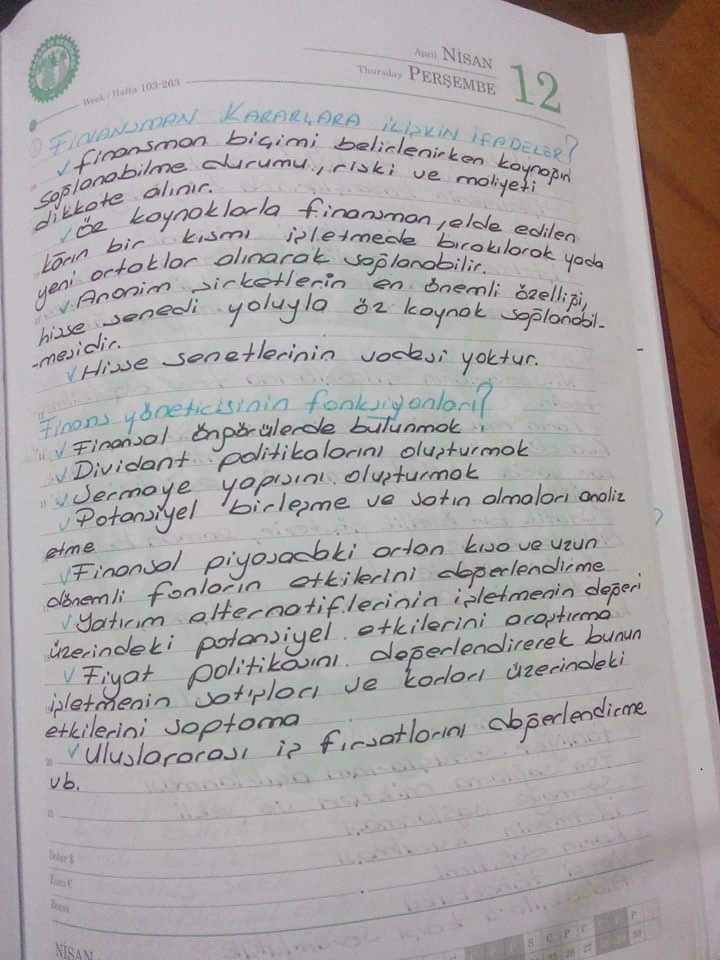 April NİSAN
Thursday PERŞEMBE 12
Week / Hafta 103-263
FİNANSMAN KARARLARA İLİŞKİN İFADELER?
✓ Finansman biçimi belirlenirken kaynağın
sağlanabilme durumu, riski ve maliyeti
dikkate alınır.
✓ Öz kaynaklarla finansman, elde edilen
karın bir kısmı işletmede bırakılarak yada
yeni ortaklar alınarak sağlanabilir.
✓ Anonim şirketlerin en önemli özelliği,
hisse senedi yoluyla öz kaynak sağlanabil-
-mesidir.
✓ Hisse senetlerinin vadesi yoktur.
Finans yöneticisinin fonksiyonları?
✓ Finansal öngörülerde bulunmak
✓ Dividant politikalarını oluşturmak
✓ Sermaye yapısını oluşturmak
✓ Potansiyel birleşme ve satın almaları analiz
etme
✓ Finansal piyasadaki artan kısa ve uzun
dönemli fonların etkilerini değerlendirme
✓ Yatırım alternatiflerinin işletmenin değeri
üzerindeki potansiyel etkilerini araştırma
✓ Fiyat politikasını değerlendirerek bunun
işletmenin satışları ve karları üzerindeki
etkilerini saptama
✓ Uluslararası iş fırsatlarını değerlendirme
vb.
NİSAN